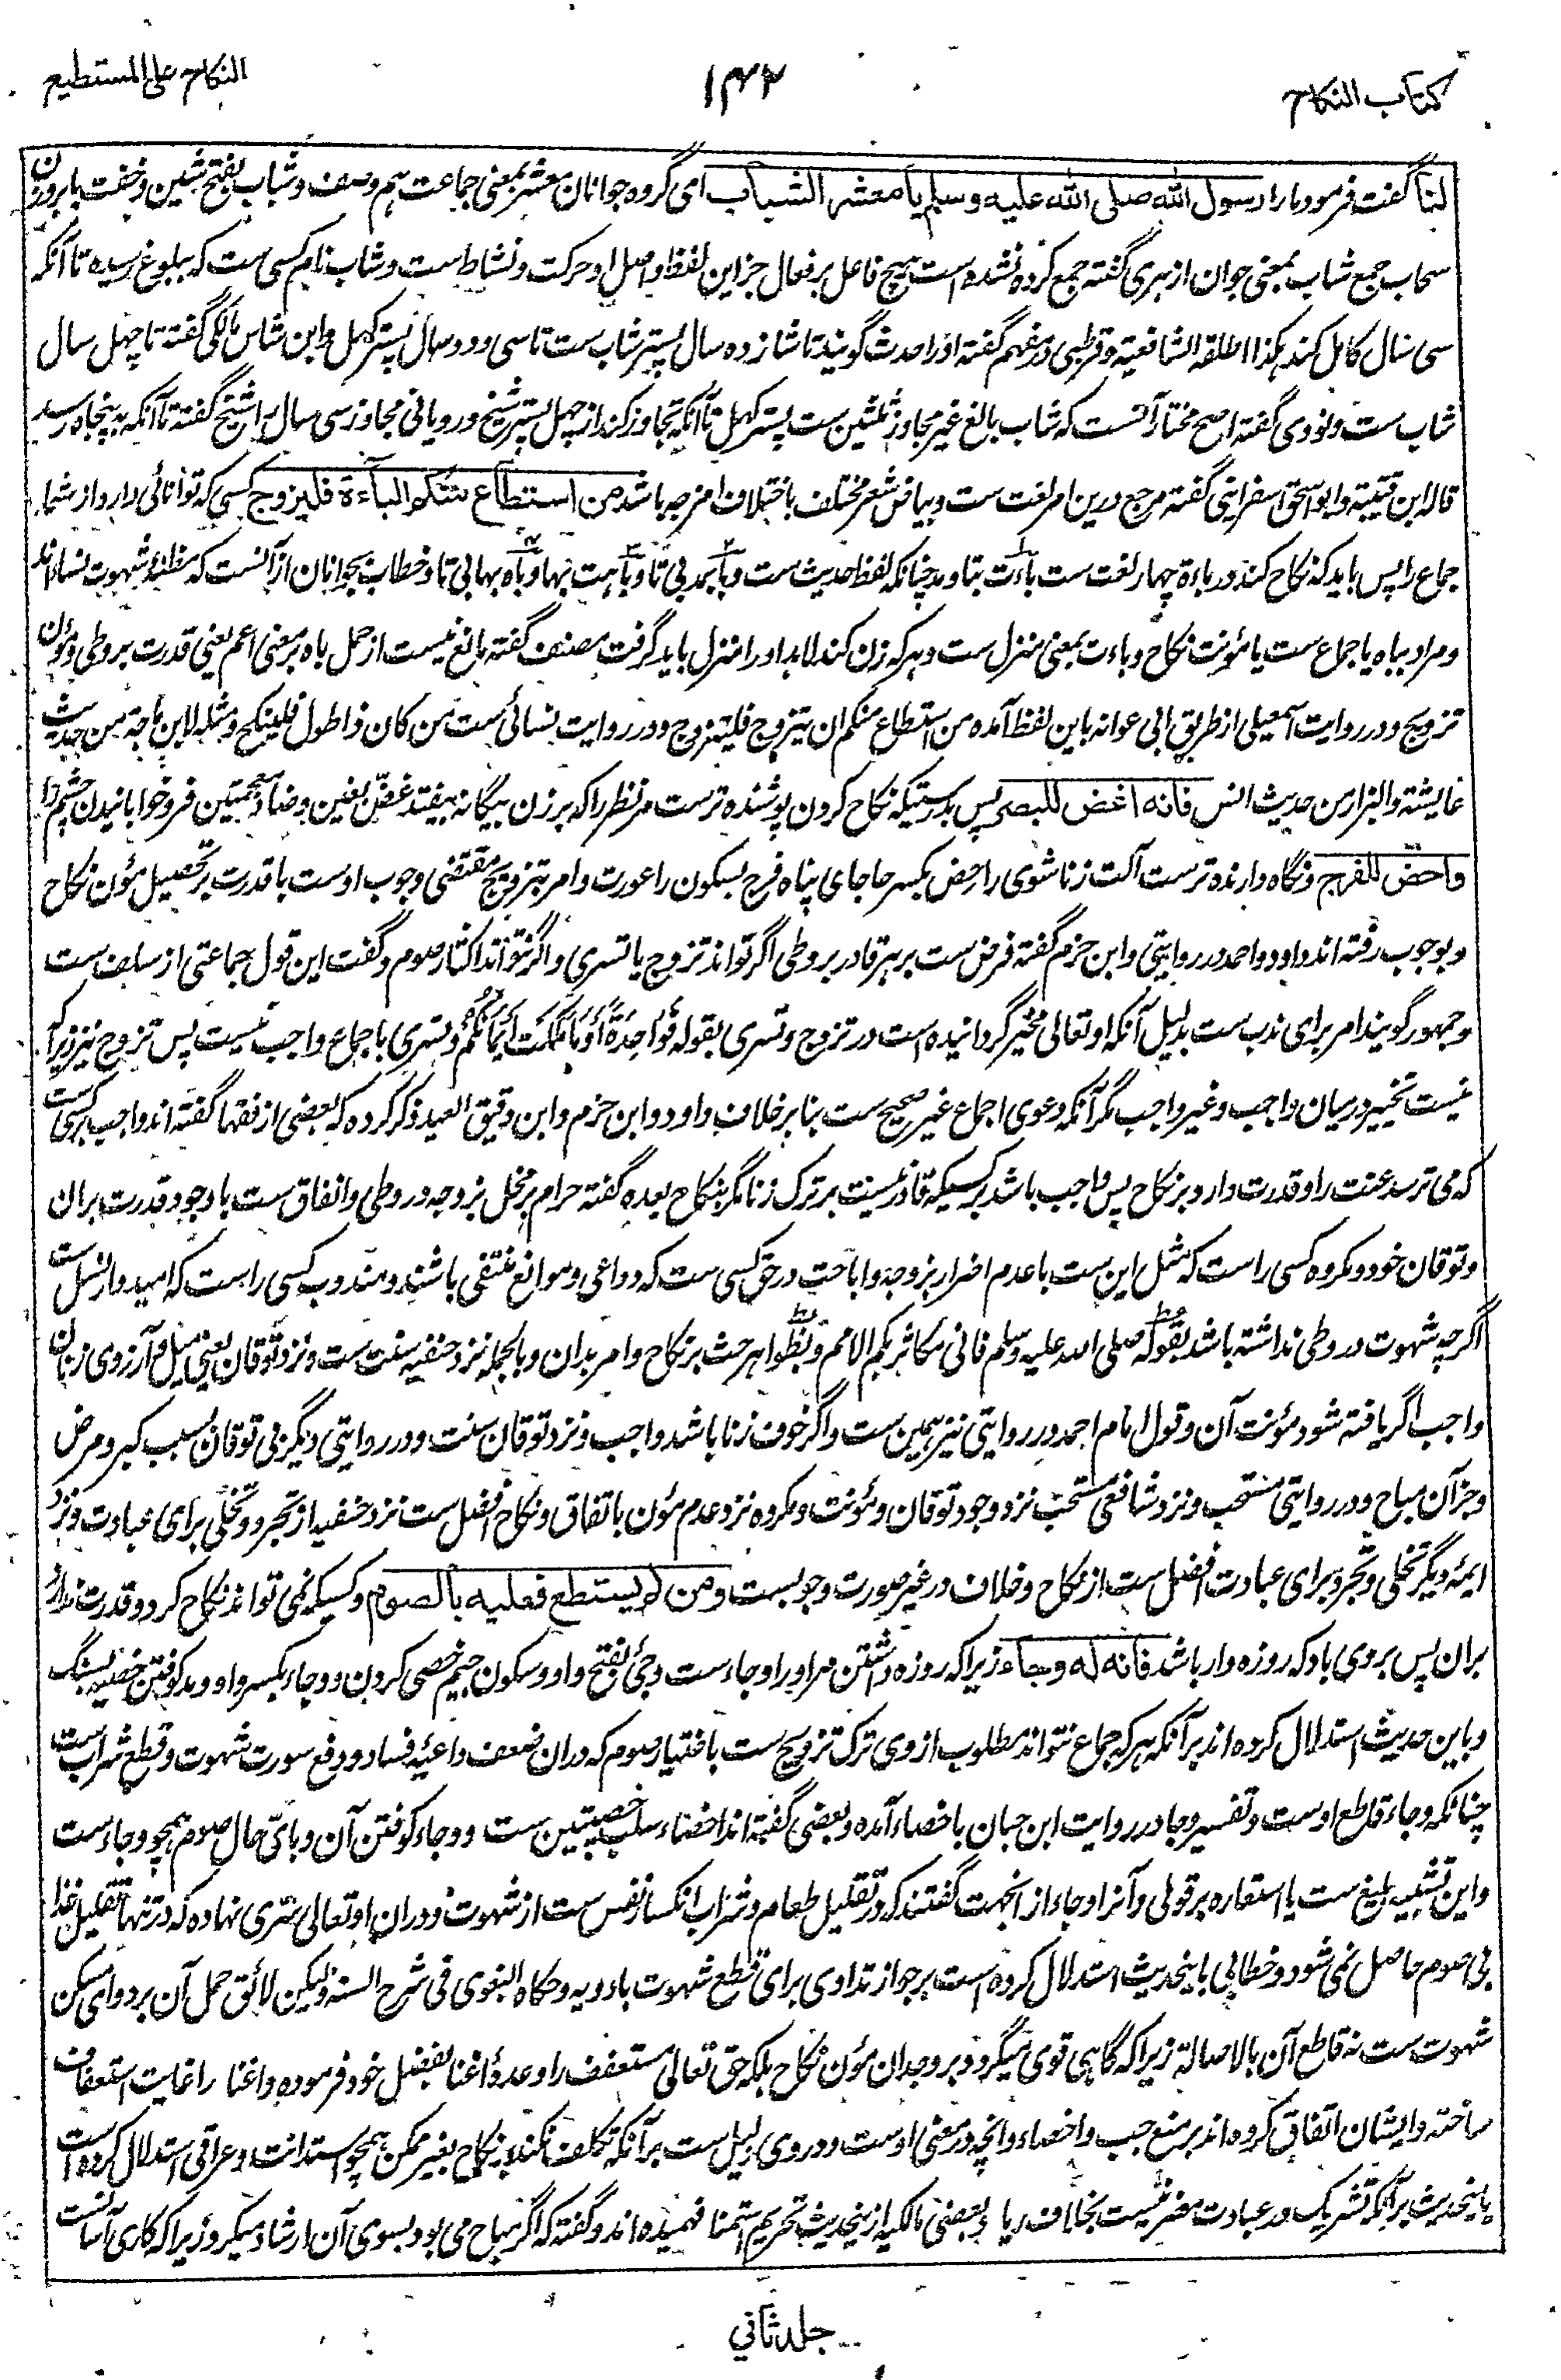 كتاب النكاح
۱۴۲
النكاح على المستطيع
لنا گفت فرمود ما را رسول الله صلى الله عليه وسلم يا معشر الشباب ای گروه جوانان معشر بمعنی جماعت ہم وصف و شباب بفتح شین و خفت با بروزن
سحاب جمع شاب بمعنی جوان ازہری گفته جمع کرده نشده است ہیچ فاعل بر فعال جز این لفظ و اصل او حرکت و نشاط ست و شاب نام کسی ست که ببلوغ رسیده تا آنکه
سی سال کامل کند ہکذا اطلقه الشافعیة و قرطبی در مفہم گفته او را حدث گویند تا شانزده سال پستر شاب ست تا سی و دو سال پستر کہل و ابن شاس مالکی گفته تا چہل سال
شاب ست و نووی گفته اصح مختار آنست که شاب بالغ غیر مجاوز ثلثین ست پستر کہل تا آنکه تجاوز کند از چہل پستر شیخ و رویانی مجاوز سی سال را شیخ گفته تا آنکه به پنجاه رسد
قاله ابن قتیبة و ابو اسحق اسفراینی گفته مرجع درین امر لغت ست و بیاض شعر مختلف باختلاف امزجه باشد من استطاع منكم الباءة فليتزوج کسی که توانائی دارد از شما
جماع را پس باید که نکاح کند و در باءة چہار لغت ست باءت بتا و مد چنانکه لفظ حدیث ست و با بمد بی تا و باہت بہا و باه بہا بی تا و خطاب بجوانان از آنست که مظنۀ شہوت نساء اند
و مراد بباه یا جماع ست یا مؤنت نکاح و باءت بمعنی منزل ست و ہر که زن کند لابد او را منزل باید گرفت مصنف گفته مانع نیست از حمل باه بر معنی اعم یعنی قدرت بر وطی و مؤن
تزویج و در روایت اسمعیلی از طریق ابی عوانه باین لفظ آمده من استطاع منکم ان یتزوج فلیتزوج و در روایت نسائی ست من کان ذا طول فلینکح و مثله لابن ماجة من حدیث
عایشة و البزار من حدیث انس فانه اغض للبصر پس بدرستیکه نکاح کردن پوشنده ترست مر نظر را که بر زن بیگانه بیفتد غض بغین و ضاد معجمتین فرو خوابانیدن چشم را
واحصن للفرج و نگاه دارنده ترست آلت زناشوی را حصن بکسر حا جای پناه فرج بسکون را عورت و امر بتزویج مقتضی وجوب اوست با قدرت بر تحصیل مؤن نکاح
و بوجوب رفته اند داود و احمد در روایتی و ابن حزم گفته فرض ست بر ہر قادر بر وطی اگر تواند تزوج یا تسری و اگر نتواند اکثار صوم و گفت این قول جماعتی از سلف ست
و جمہور گویند امر برای ندب ست بدلیل آنکه او تعالی مخیر گردانیده است در تزوج و تسری بقوله فَوَاحِدَةً أَوْ مَا مَلَكَتْ أَيْمَانُكُمْ و تسری باجماع واجب نیست پس تزوج نیز زیرا که
نیست تخییر درمیان واجب و غیر واجب مگر آنکه دعوی اجماع غیر صحیح ست بنا بر خلاف داود و ابن حزم و ابن دقیق العید ذکر کرده که بعضی از فقہا گفته اند واجب بر کسی ست
که می ترسد عنت را و قدرت دارد بر نکاح پس واجب باشد بر کسیکه قادر نیست بر ترک زنا مگر بنکاح بعده گفته حرام بر مخل بزوجه در وطی و انفاق ست با وجود قدرت بران
و توقان خود و مکروه کسی راست که مثل این ست با عدم اضرار بزوجه و اباحت در حق کسی ست که دواعی و موانع منتفی باشند و مندوب کسی راست که امیدوار نسل ست
اگرچه شہوت در وطی نداشته باشد بقوله صلی الله علیه وسلم فانی مکاثر بکم الامم و بظواہر حث بر نکاح و امر بدان و بالجمله نزد حنفیه سنت ست و نزد توقان یعنی میل و آرزوی زنان
واجب اگر یافته شود مؤنت آن و قول امام احمد در روایتی نیز ہمین ست و اگر خوف زنا باشد واجب و نزد توقان سنت و در روایتی دیگر بی توقان بسبب کبر و مرض
و جز آن مباح و در روایتی مستحب و نزد شافعی مستحب نزد وجود توقان و مؤنت و مکروه نزد عدم مؤن باتفاق و نکاح افضل ست نزد حنفیه از تجرد و تخلی برای عبادت و نزد
ایمۀ دیگر تخلی و تجرد برای عبادت افضل ست از نکاح و خلاف در غیر صورت وجوبست ومن لم يستطع فعليه بالصوم و کسیکه نمی تواند نکاح کرد و قدرت ندارد
بران پس بر وی باد که روزه دار باشد فانه له وجاء زیرا که روزه داشتن مر او را وجاء ست و جئ بفتح واو و سکون جیم خصی کردن و وجاء بکسر واو و مد کوفتن خصیه بسنگ
و باین حدیث استدلال کرده اند بر آنکه ہر که جماع نتواند مطلوب از وی ترک تزویج ست باختیار صوم که دران ضعف داعیۀ فساد و دفع سورت شہوت و قطع شر اب ست
چنانکه وجاء قاطع اوست و تفسیر وجا در روایت ابن حبان باخصاء آمده و بعضی گفته اند اخصاء سلب خصیتین ست و وجاء کوفتن آن و بای حال صوم ہمچو وجاء ست
و این تشبیه بلیغ ست یا استعاره بر قولی و آنرا وجاء از انجہت گفتند که در تقلیل طعام و شراب انکسار نفس ست از شہوت و دران او تعالی سری نہاده که در تنہا تقلیل غذا
بی صوم حاصل نمی شود و خطابی باینحدیث استدلال کرده است بر جواز تداوی برای قطع شہوت بادویه و حکاه البغوی فی شرح السنة و لیکن لائق حمل آن بر دوای مسکن
شہوت ست نه قاطع آن بالاصالة زیرا که گاہی قوی میگردد بر وجدان مؤن نکاح بلکه حق تعالی مستعفف را وعدۀ اغنا بفضل خود فرموده و اغنا را غایت استعفاف
ساخته و ایشان اتفاق کرده اند بر منع جب و اخصاء و انچه در معنی اوست و در وی دلیل ست بر آنکه تکلف نکند برای نکاح بغیر ممکن ہمچو استدانت و عراقی استدلال کرده است
باینحدیث بر آنکه تشریک در عبادت مضر نیست بخلاف ریا و بعضی مالکیه از ینحدیث تحریم استمنا فہمیده اند و گفته که اگر مباح می بود بسوی آن ارشاد میکرد زیرا که کاری آسانست
جلد ثاني